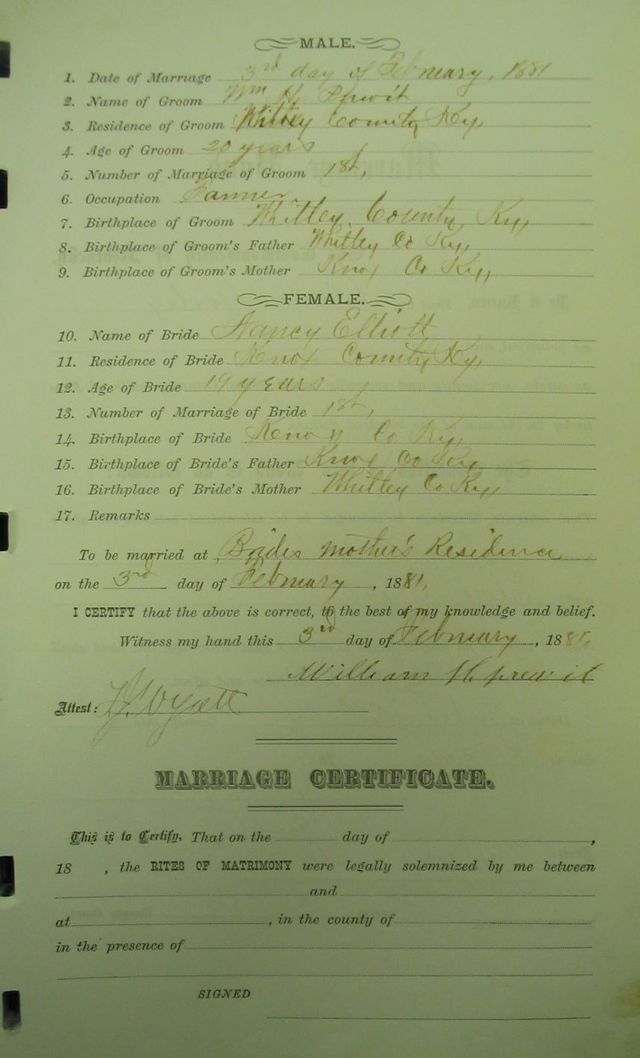 MALE.
1. Date of Marriage 3rd day of February, 1881
2. Name of Groom Wm H Prewit
3. Residence of Groom Whitley County Ky,
4. Age of Groom 20 years
5. Number of Marriage of Groom 1st,
6. Occupation Farmer
7. Birthplace of Groom Whitley County, Ky,
8. Birthplace of Groom's Father Whitley Co Ky,
9. Birthplace of Groom's Mother Knox Co Ky,
FEMALE.
10. Name of Bride Nancy Elliott
11. Residence of Bride Knox County Ky,
12. Age of Bride 19 years
13. Number of Marriage of Bride 1st,
14. Birthplace of Bride Co Ky,
15. Birthplace of Bride's Father Knox Co Ky
16. Birthplace of Bride's Mother Whitley Co Ky,
17. Remarks
To be married at Brides mother's Residence
on the 3rd day of February, 1881,
I CERTIFY that the above is correct, to the best of my knowledge and belief.
Witness my hand this 3rd day of February, 1881,
William H prewit
Attest: Wyatt
MARRIAGE CERTIFICATE.
This is to Certify, That on the day of ,
18 , the RITES OF MATRIMONY were legally solemnized by me between
and
at , in the county of
in the presence of
SIGNED